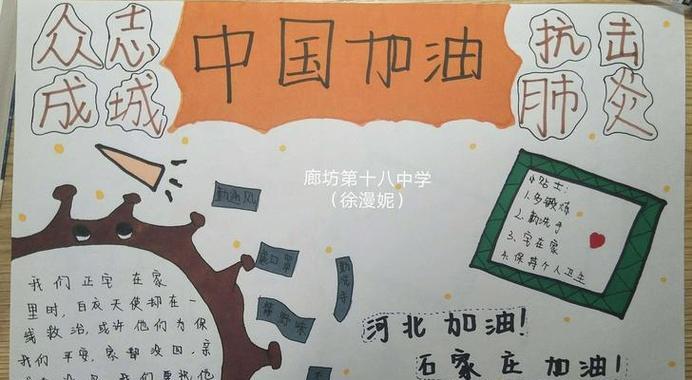 众志
成城
中国加油
抗击
肺炎
廊坊第十八中学
（徐漫妮）
小贴士：
1.多锻炼
2.勤洗手
3.宅在家
4.保持个人卫生
勤通风
戴口罩
勤洗手
河北加油！
石家庄加油！
我们正宅在家
里时，白衣天使却在一
线救治，或许他们为保
我们平安，家都没回，亲